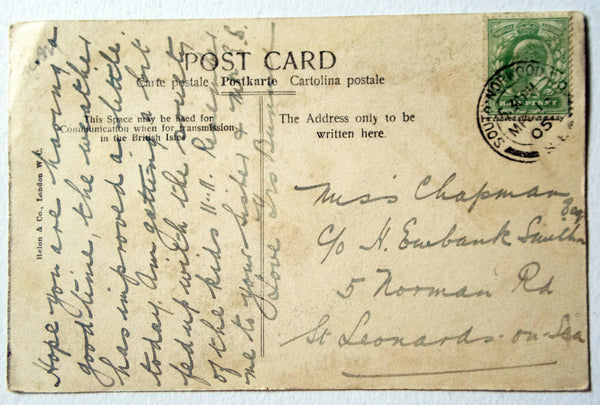 POST CARD
Carte postale Postkarte Cartolina postale
This Space may be used for
Communication when for transmission
in the British Isles
The Address only to be
written here.
Helon & Co., London W.C.
SOUTH NORWOOD
05
S.E.
Hope you are having a
good time, the weather
has improved a little
today. Am getting a bit
fed up with the
of the kids 11-11. Remember
me to your Sister & Mr
Love
Miss Chapman
C/o H. Ewbank Smith Esq
5 Norman Rd
St Leonards-on-Sea